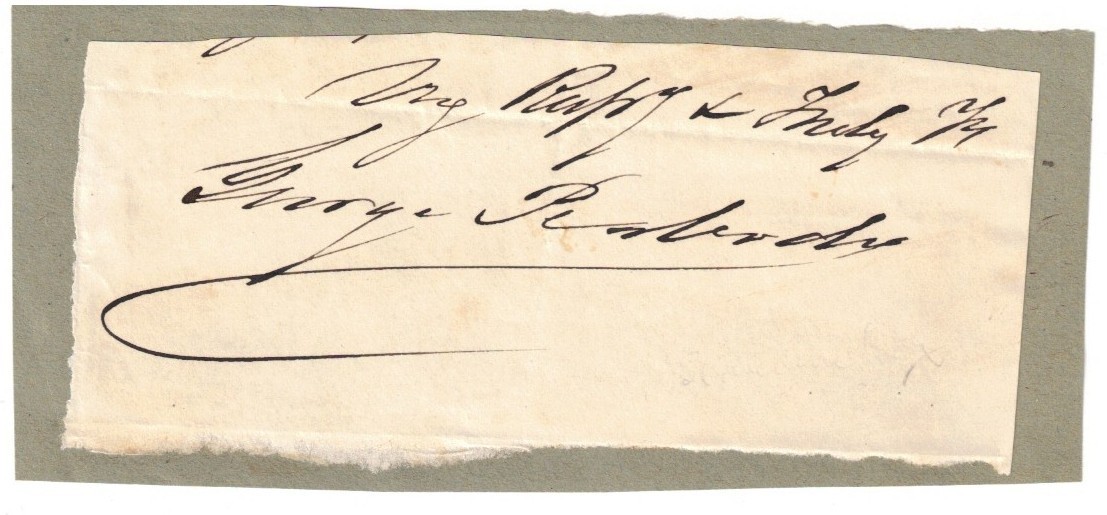 Very Respy & Truly Yrs
George Peabody